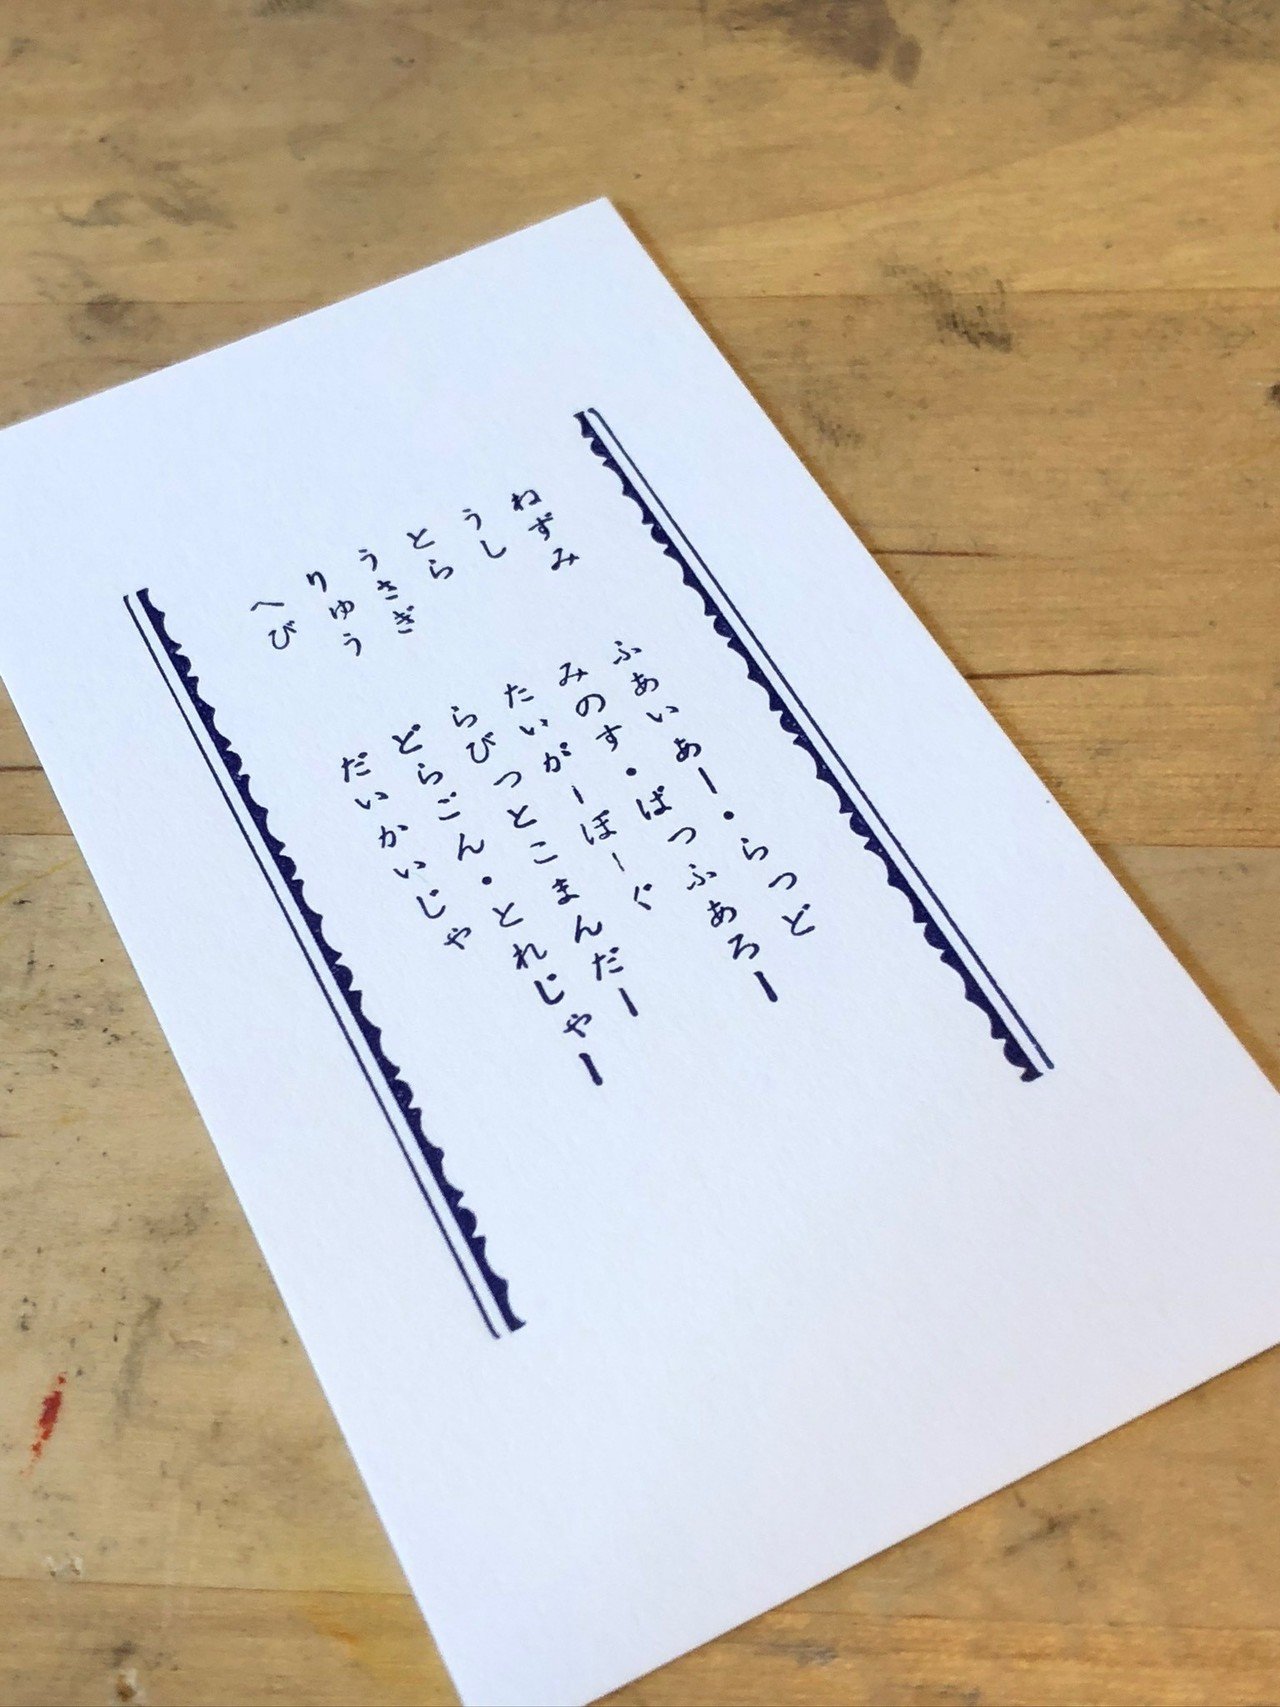 ねずみ　ふあいあー・らつど
うし　みのす・ばつふあろー
とら　たいがーほーぐ
うさぎ　らびつとこまんだー
りゅう　どらごん・とれじゃー
へび　だいかいじゃ